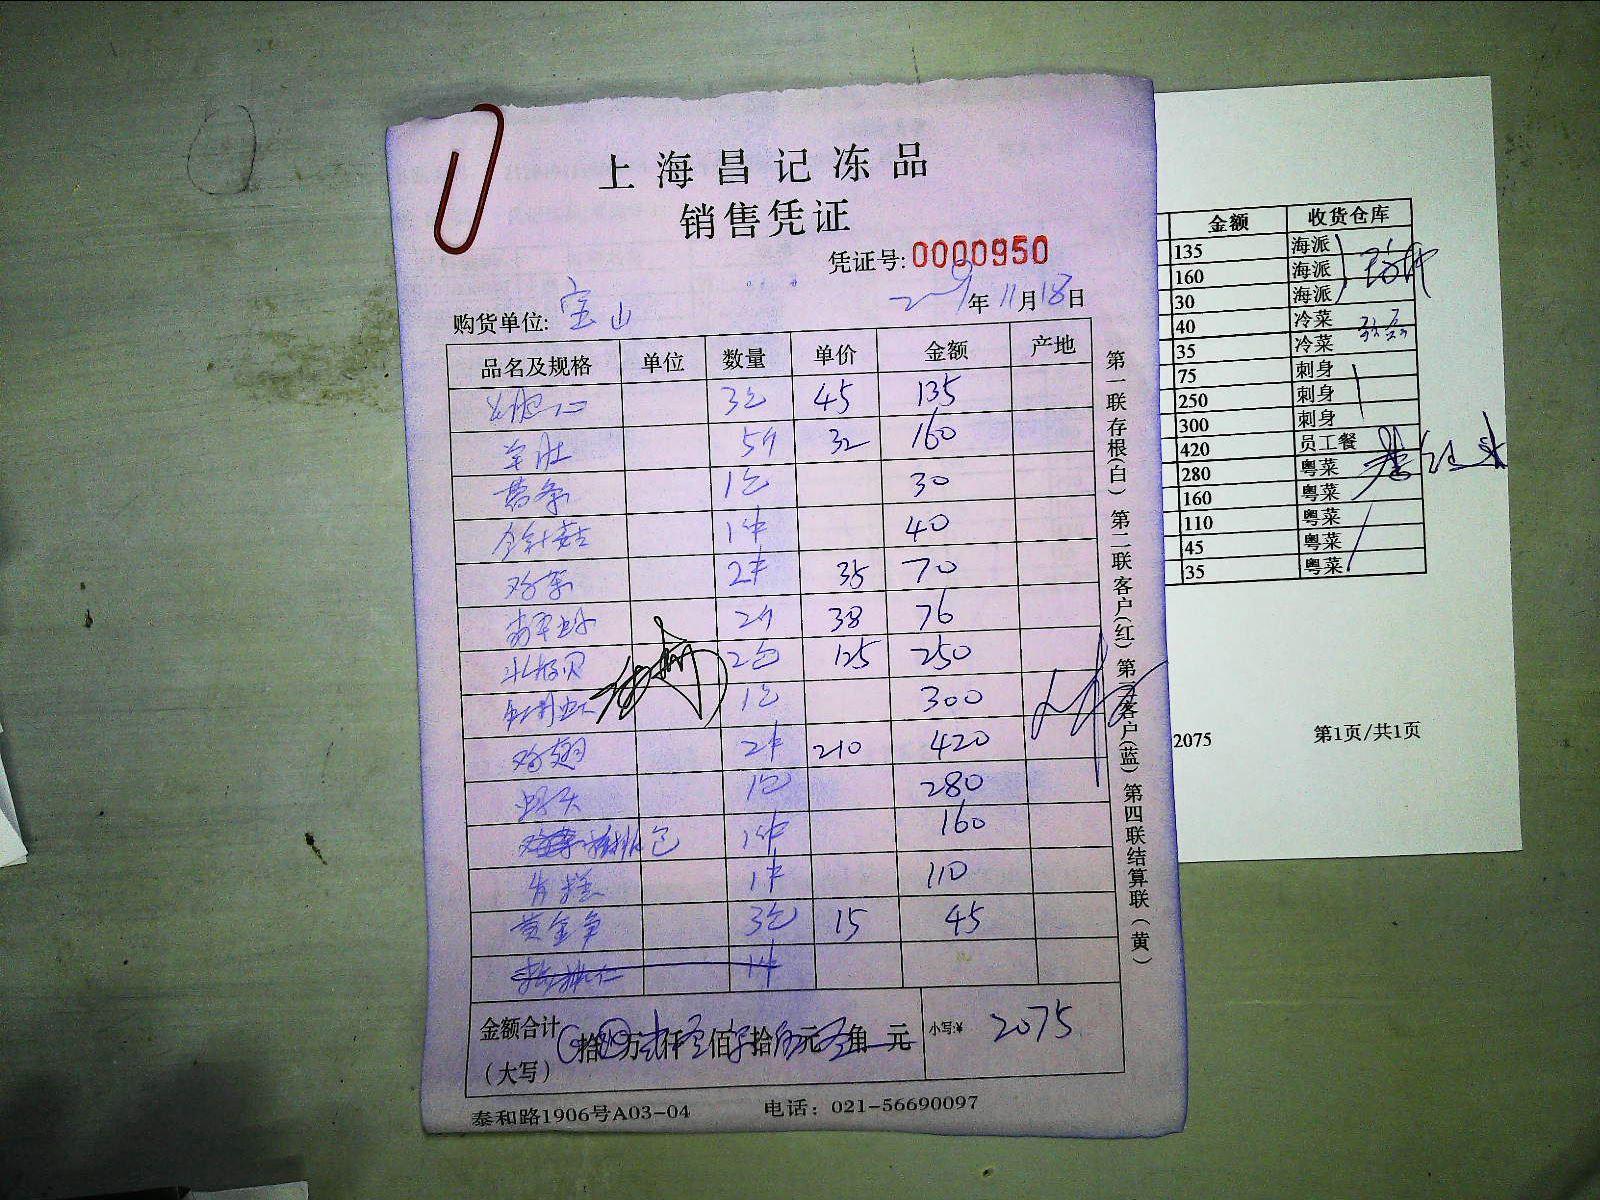 上海昌记冻品
销售凭证
凭证号:0000950
购货单位: 宝山 2019年11月18日
品名及规格 单位 数量 单价 金额 产地
3包 45 135
羊肚 5个 32 160
薯条 1包 30
金针菇 1件 40
2件 35 70
2个 38 76
北极贝 2包 125 250
1包 300
鸡翅 2件 210 420
1包 280
包 1件 160
年糕 1件 110
黄金 3包 15 45
1件
金额合计
(大写) 拾 万 仟 佰 拾 元 角 元 小写:¥ 2075
泰和路1906号A03-04 电话: 021-56690097
第一联存根(白) 第二联客户(红) 第三联客户(蓝) 第四联结算联(黄)
金额 收货仓库
135 海派
160 海派
30 海派
40 冷菜
35 冷菜
75 刺身
250 刺身
300 刺身
420 员工餐
280 粤菜
160 粤菜
110 粤菜
45 粤菜
35 粤菜
2075 第1页/共1页